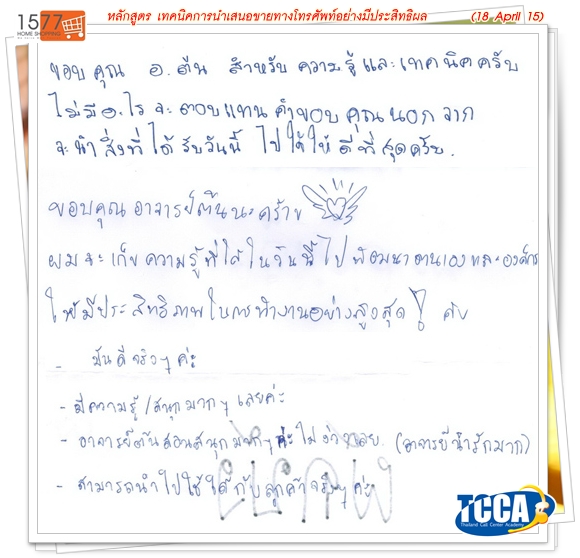 1577
HOME SHOPPING
หลักสูตร เทคนิคการนำเสนอขายทางโทรศัพท์อย่างมีประสิทธิผล (18 April 15)
ขอบคุณ อ.ต้น สำหรับ ความรู้ และเทคนิคครับ
ไม่มีอะไร จะ ตอบแทน คำขอบคุณนอกจาก
จะนำสิ่งที่ได้รับวันนี้ ไปใช้ให้ดีที่สุดครับ.
ขอบคุณอาจารย์ต้นนะคร้าบ
ผมจะเก็บความรู้ที่ได้ในวันนี้ไปพัฒนาตนเองและองค์กร
ให้มีประสิทธิภาพในการทำงานอย่างสูงสุด! คับ
- มันดีจริงๆ ค่ะ
- มีความรู้/สนุกมากๆ เลยค่ะ
- อาจารย์ต้นสอนสนุกมากๆ ค่ะ ไม่ง่วงเลย. (อาจารย์น่ารักมาก)
- สามารถนำไปใช้ได้กับลูกค้าจริงๆ ค่ะ
TCCA
Thailand Call Center Academy